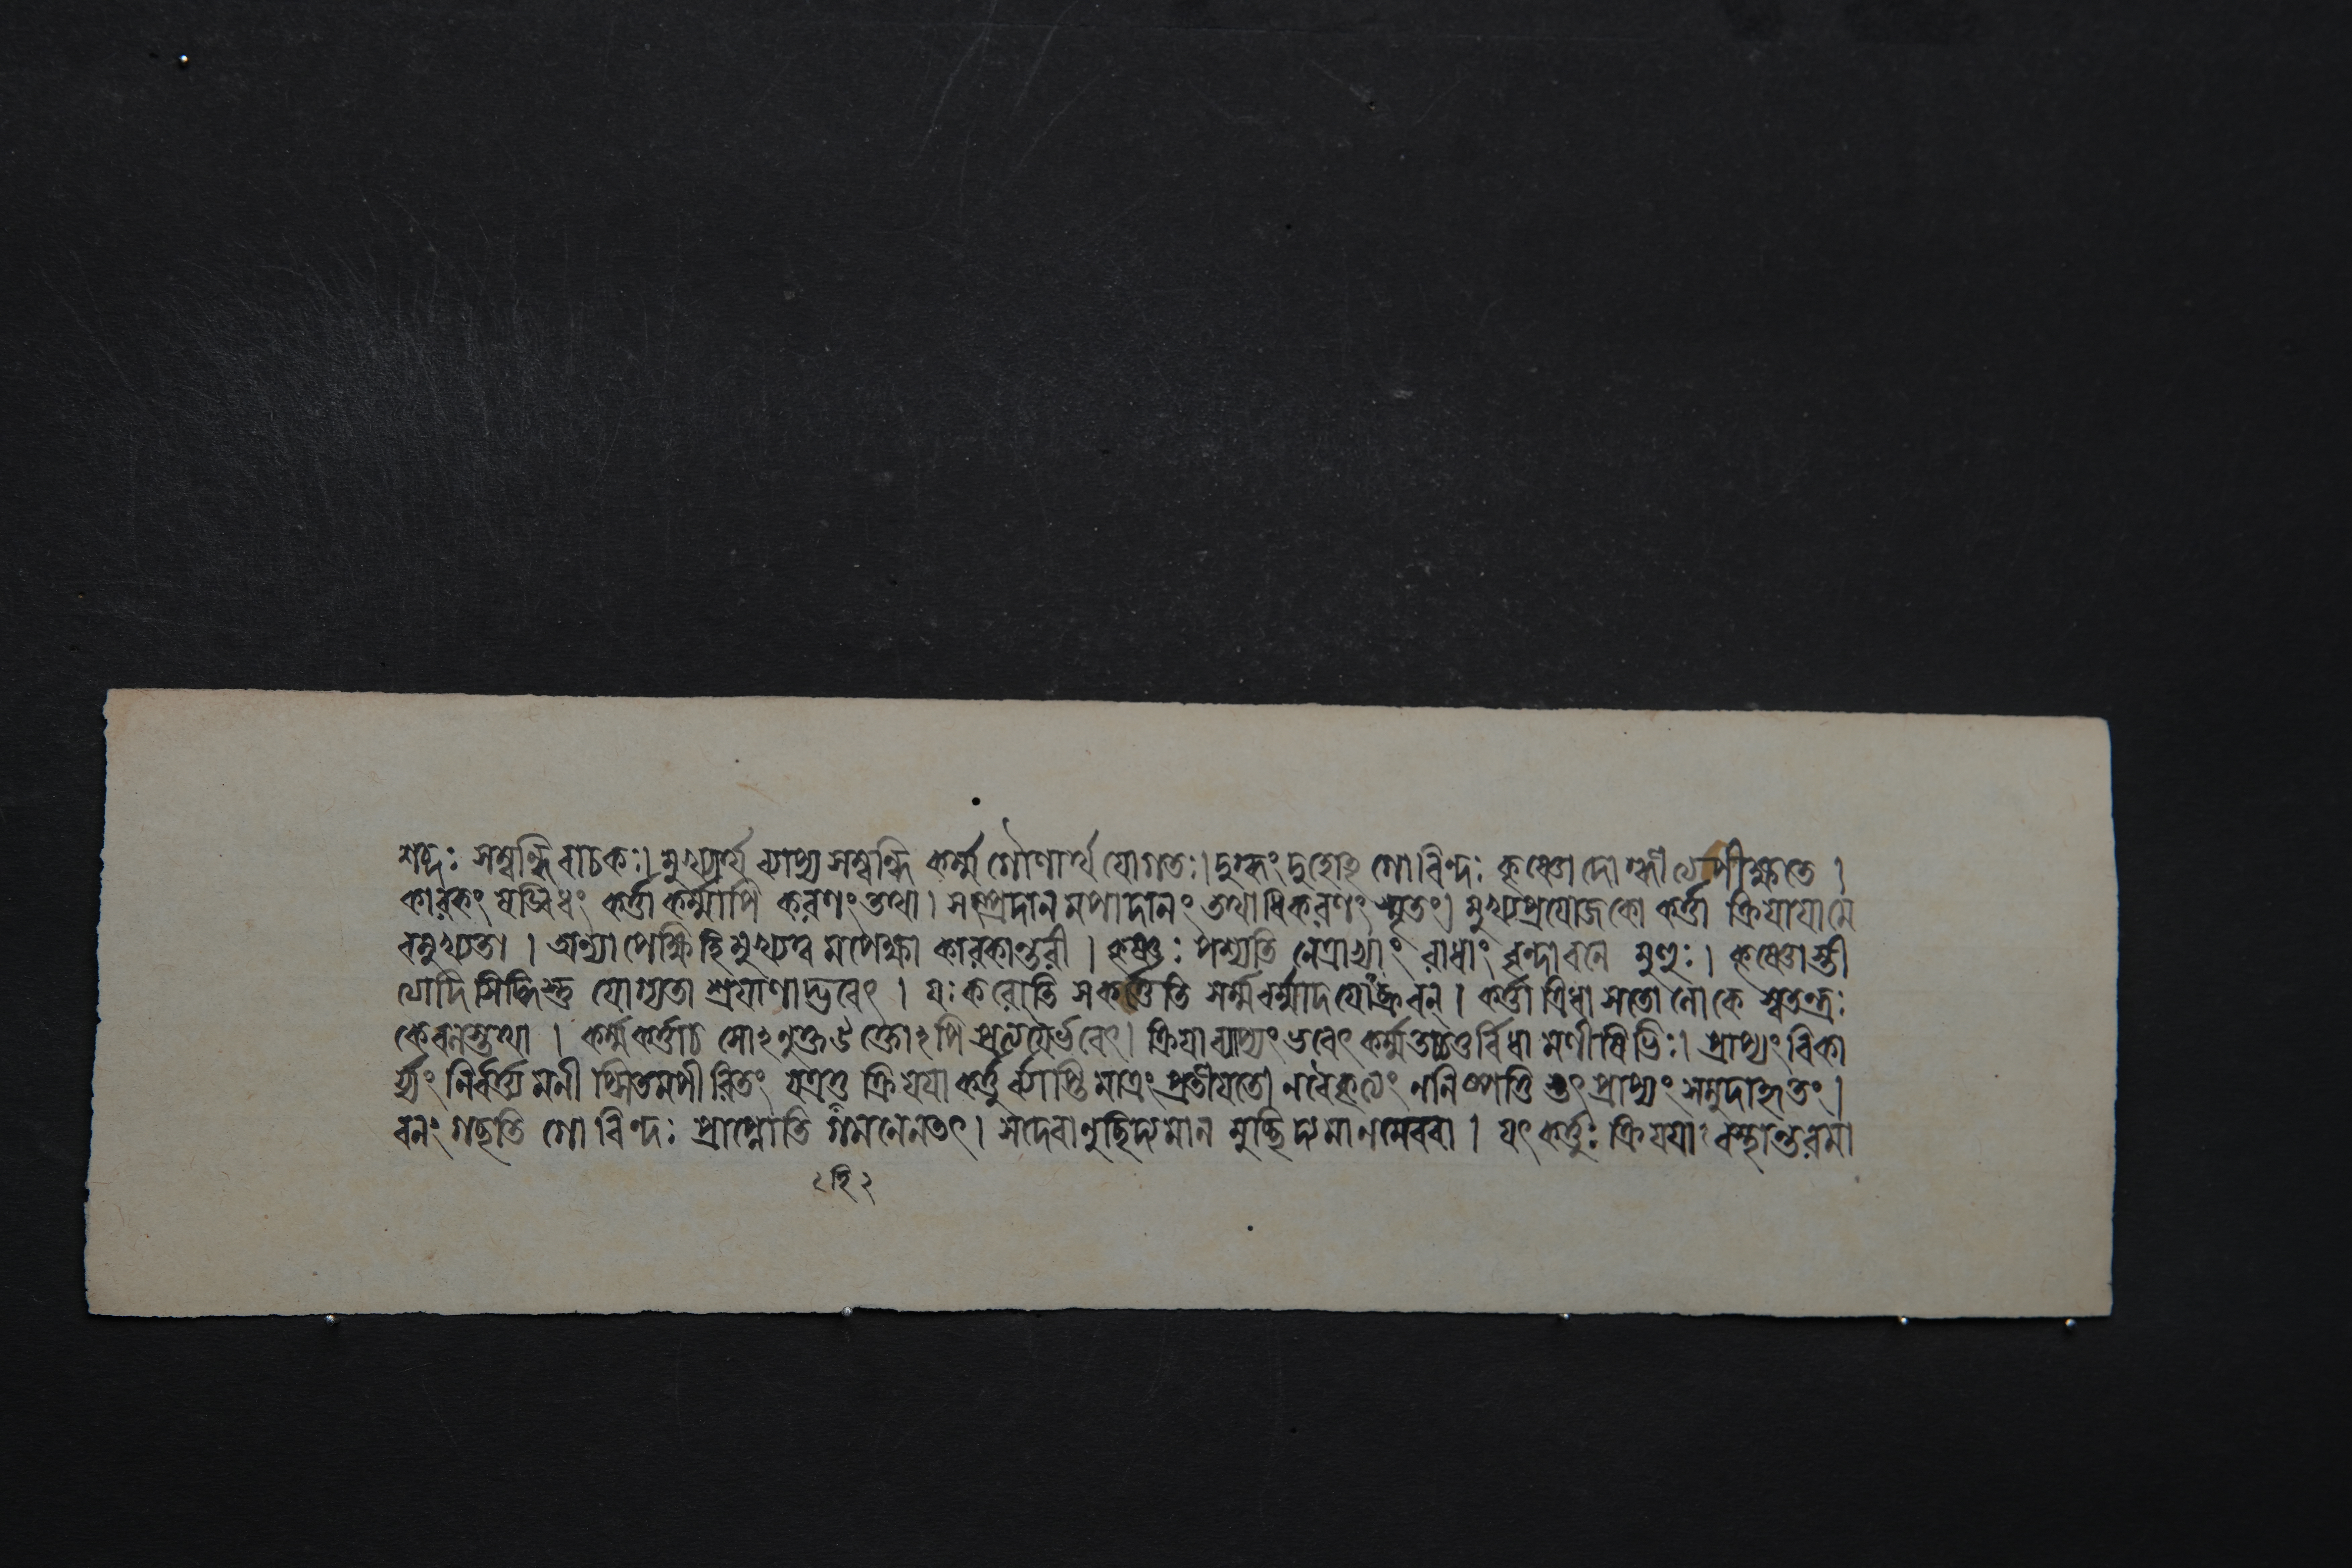 শব্দঃ সম্বন্ধিবাচকঃ। মুখ্যার্থ ব্যাপ্য সম্বন্ধি কর্ম্ম গৌণার্থ যোগতঃ। দুগ্ধং গোবিন্দঃ
কারকং ষড়্বিধং কর্ত্তা কর্ম্মাপি করণং তথা। সম্প্রদান মপাদানং তথাধিকরণং স্মৃতং। মুখ্যপ্রযোজকো কর্ত্তা ক্রিযাযামে
বমুখ্যতা। অন্যাপেক্ষিহি মুখ্যত্ব মপেক্ষ্য কারকান্তরী। কৃষ্ণঃ পশ্যতি নেত্রাভ্যাং রাধাং বৃন্দাবনে মুহুঃ।
যোগ্যতা শ্রযাণাদ্ভবেৎ। যঃ করোতি সকর্ত্তেতি ব্রুবন্। কর্ত্তা ত্রিধা সতো লোকে স্বতন্ত্রঃ
কেবলস্তথা। কর্ম্মকর্ত্তাচ সোঽনুক্ত উক্তোঽপি ক্রিযা ব্যাপ্যং ভবেৎ কর্ম্ম তচ্চতুর্বিধা মণীষিভিঃ। প্রাপ্যং বিকা
র্য্যং নির্বর্ত্ত্য মনীপ্সিতমপীরিতং যত্রতু ক্রিযযা কর্ত্তু র্ব্যাপ্তি মাত্রং প্রতীযতে। ননিষ্পত্তি স্তৎ প্রাপ্যং সমুদাহৃতং।
বনং গচ্ছতি গোবিন্দঃ প্রাপ্নোতি গমনেনতৎ। সদেবানুচ্ছিদ্যমান মুচ্ছিদ্যমানমেববা। যৎ কর্ত্তুঃ ক্রিযযাঽবস্থান্তরমা